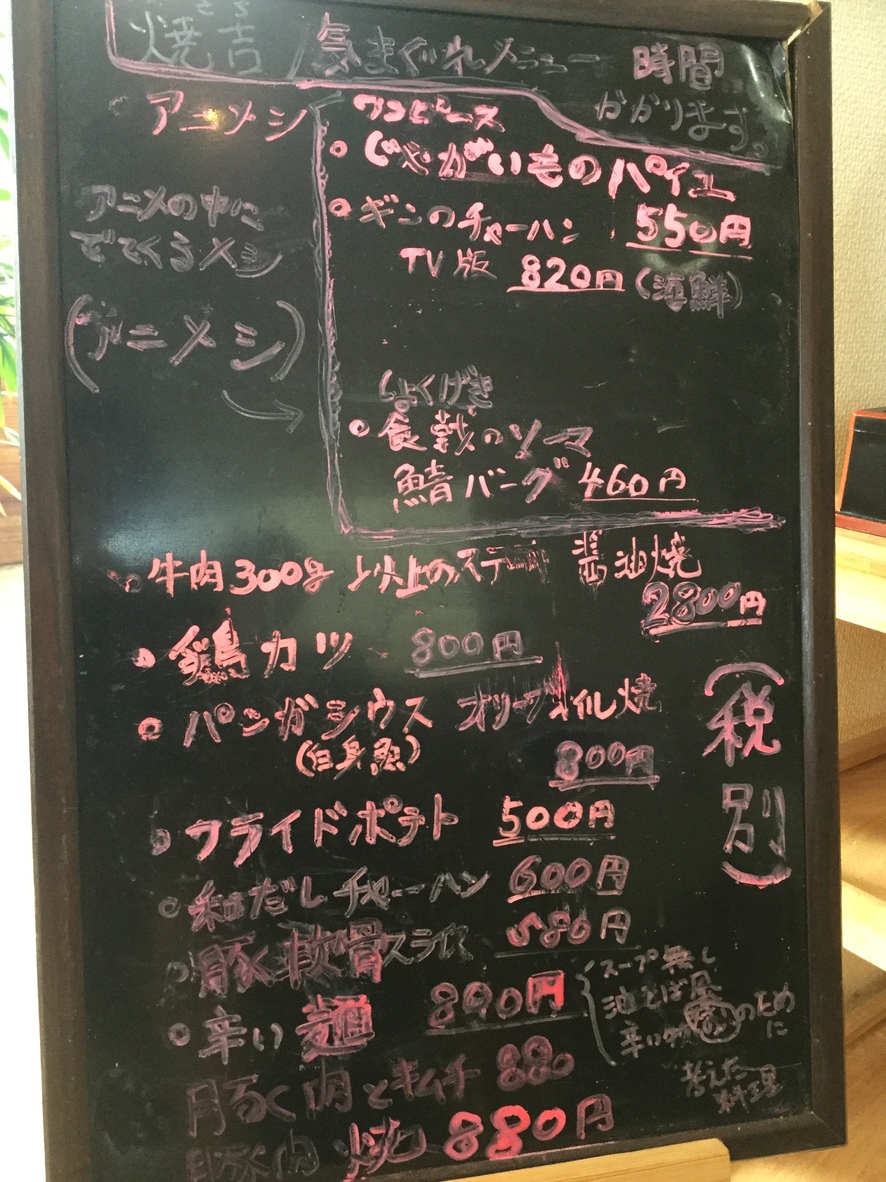 焼吉 気まぐれメニュー 時間
かかります
アニメシ
ワンピース
じゃがいものパイユ
550円
アニメの中に
でてくるメシ
(アニメシ)
ギンのチャーハン
TV版 820円 (海鮮)
しょくげき
食戟のソーマ
鯖バーグ 460円
牛肉300g以上のステーキ 醤油焼
2800円
鶏カツ 800円
パンガシウス オリーブオイル焼
(白身魚)
800円
(税別)
フライドポテト 500円
和だしチャーハン 600円
豚軟骨スライス 580円
辛い麺 890円
スープ無し
油そば風
のため
に
考えた
料理
豚肉とキムチ 880
豚肉 焼 880円